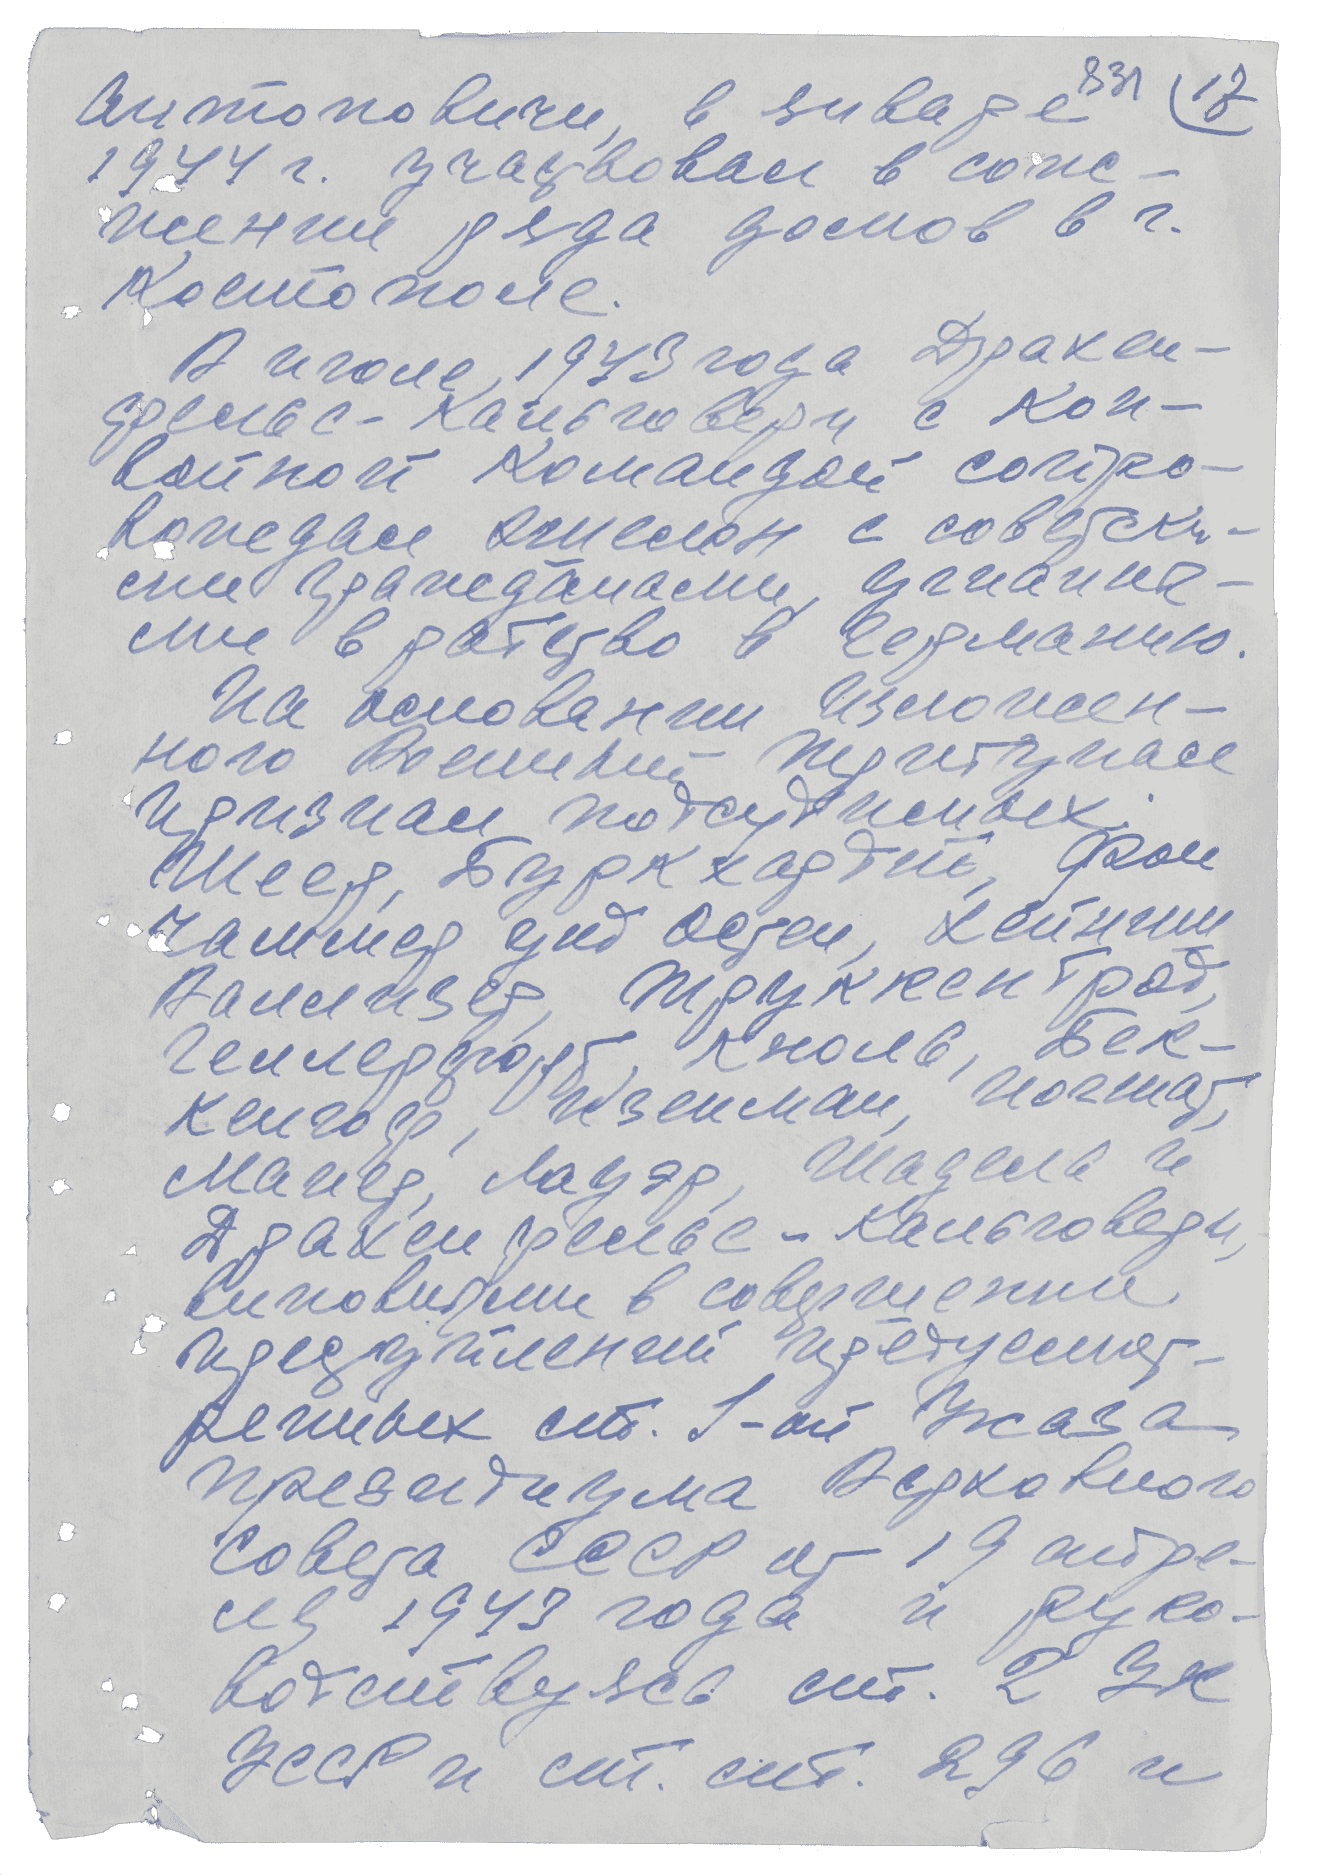 831 17
Антоновичи, в январе
1944 г. участвовал в сож-
жении ряда домов в г.
Костополе.
В июле 1943 года Дракен-
фельс-Кальговери с кон-
войной командой сопро-
вождал эшелон с советски-
ми гражданами, угнанны-
ми в рабство в Германию.
На основании изложен-
ного Военный Трибунал
признал подсудимых:
Шеер, Буркхардт, фон
Чаммер унд Остен, Хейниш
Валлизер, Труккенброд,
Геллерфорт, Кноль, Бек-
кенгоф, Изенман, Йогшат,
Майер, Лауэр, Шадель и
Дракенфельс-Кальговери,
виновными в совершении
преступлений предусмот-
ренных ст. 1-ой Указа
Президиума Верховного
Совета СССР от 19 апре-
ля 1943 года и руко-
водствуясь ст. 2 УК
УССР и ст. ст. 296 и